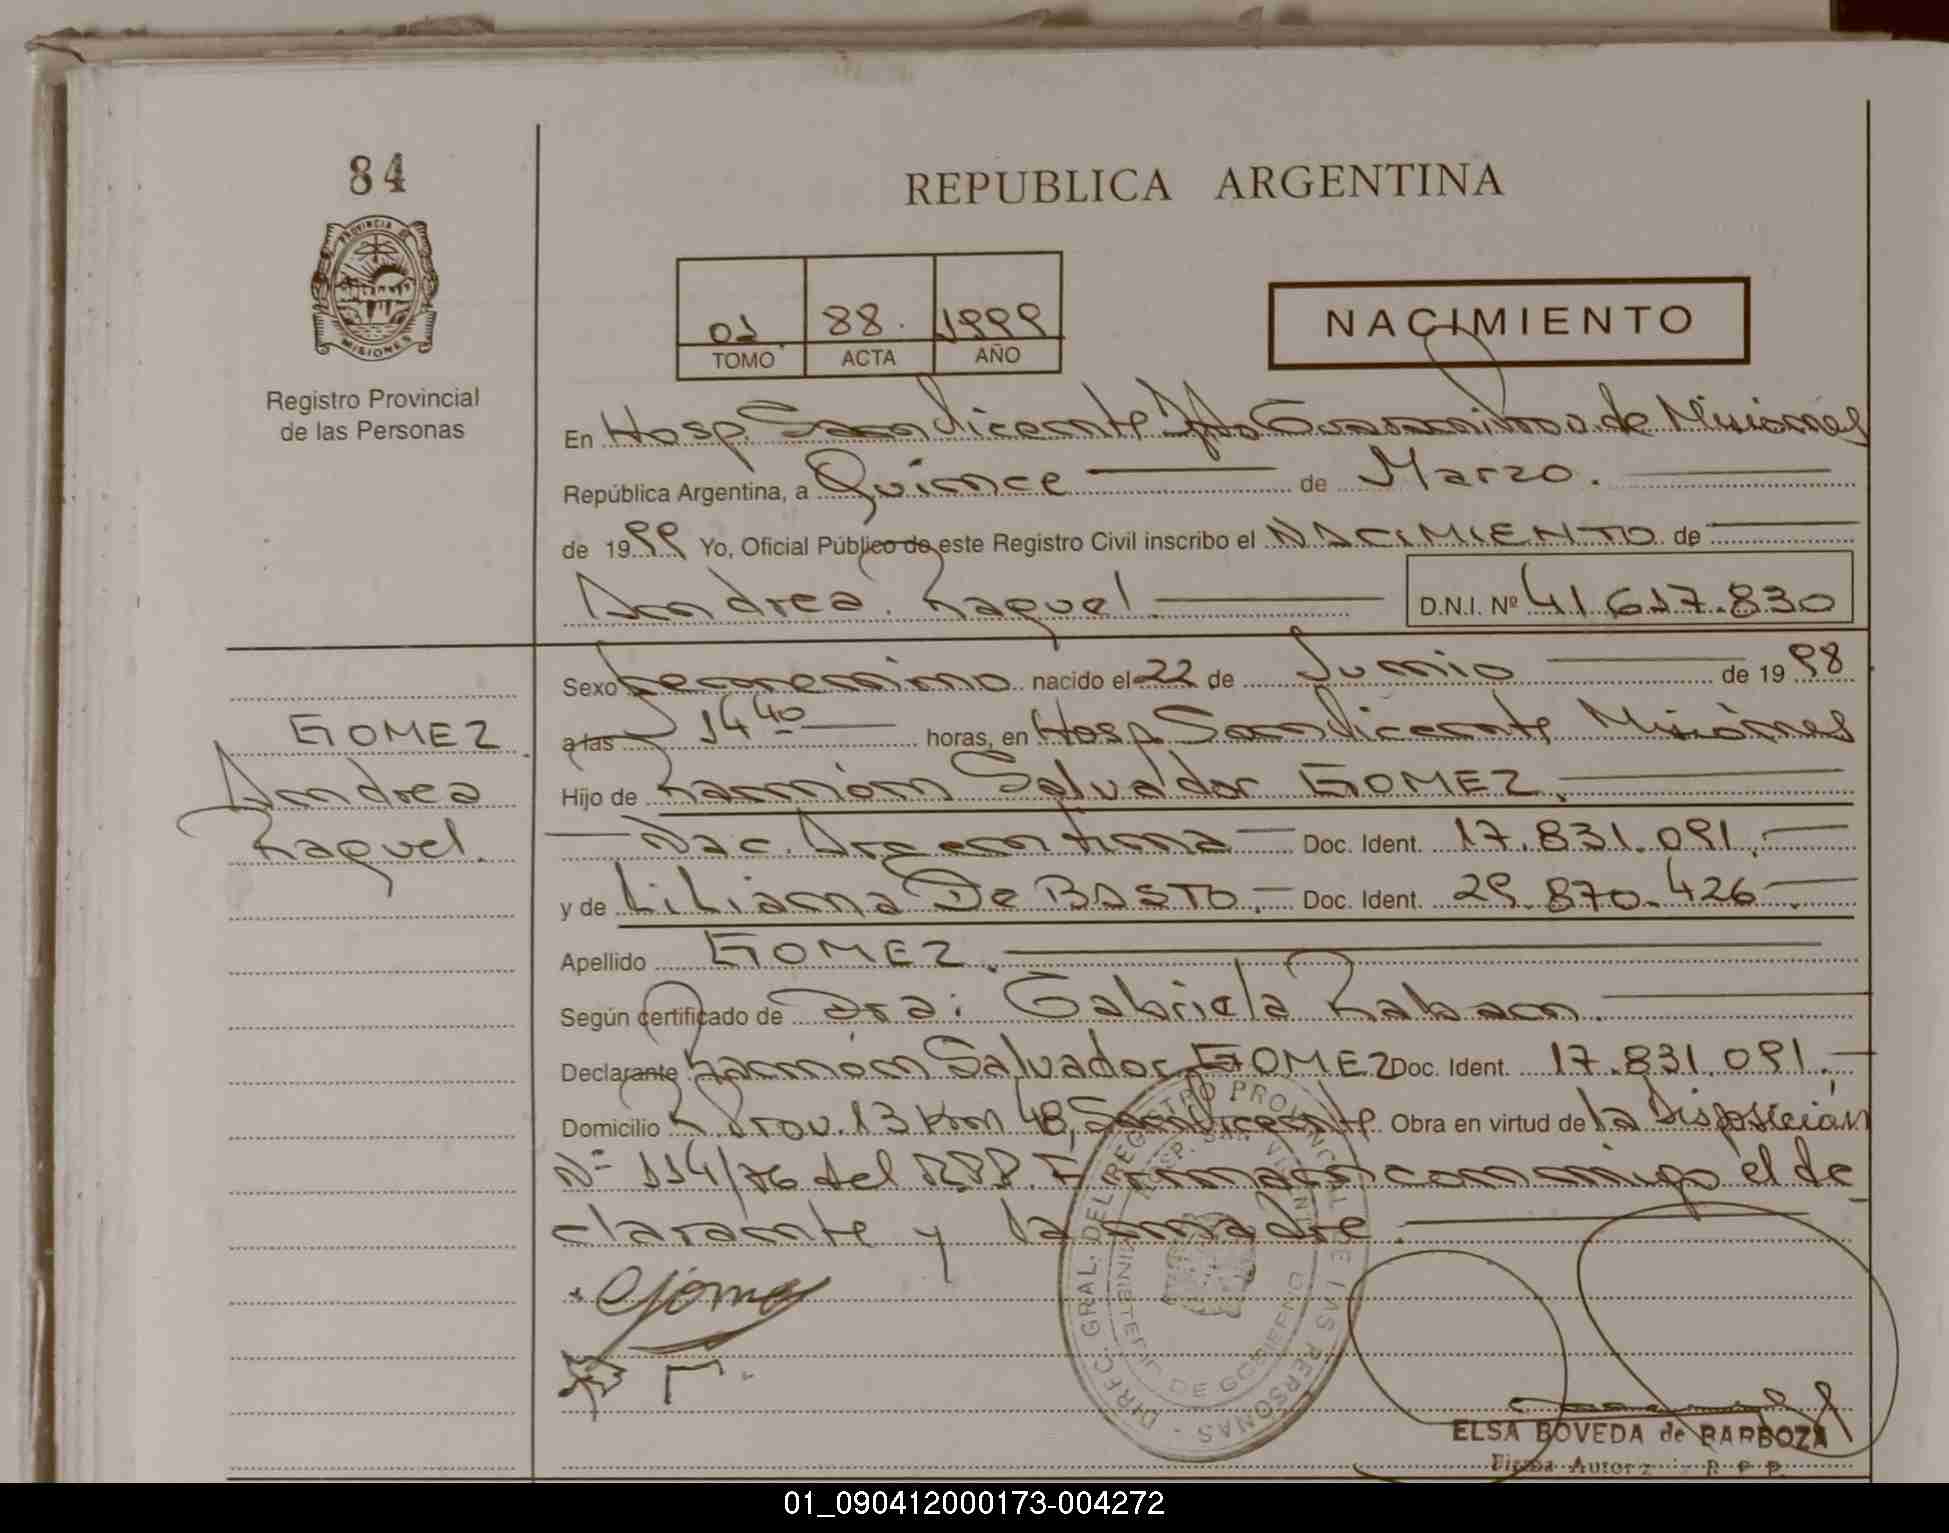 84
PROVINCIA DE
MISIONES
Registro Provincial
de las Personas
REPUBLICA ARGENTINA
01 88. 1999
TOMO ACTA AÑO
NACIMIENTO
En Hosp. San Vicente Dpto Guaraní Prov. de Misiones
República Argentina, a Quince de Marzo.
de 1999 Yo, Oficial Público de este Registro Civil inscribo el NACIMIENTO de
Andrea Raquel. D.N.I. Nº 41.617.830
Sexo Femenino nacido el 22 de Junio de 1998
a las 14 40 horas, en Hosp. San Vicente Misiones
Hijo de Ramón Salvador GOMEZ.
Nac. Argentina Doc. Ident. 17.831.091.
y de Liliana De BASTO. Doc. Ident. 29.870.426.
Apellido GOMEZ.
Según certificado de Dra: Gabriela Raban.
Declarante Ramón Salvador GOMEZ Doc. Ident. 17.831.091.
Domicilio R Prov. 13 Km 48, San Vicente Obra en virtud de la Disposición
Nº 114/76 del R.P.P. Firman conmigo el de
clarante y la madre.
GOMEZ
Andrea
Raquel.
DIREC. GRAL. DEL REGISTRO PROVINCIAL DE LAS PERSONAS
HOSP. SAN VICENTE
MINISTERIO DE GOBIERNO
ELSA BOVEDA de BARBOZA
Firma Autoriz. R. P. P.
01_090412000173-004272